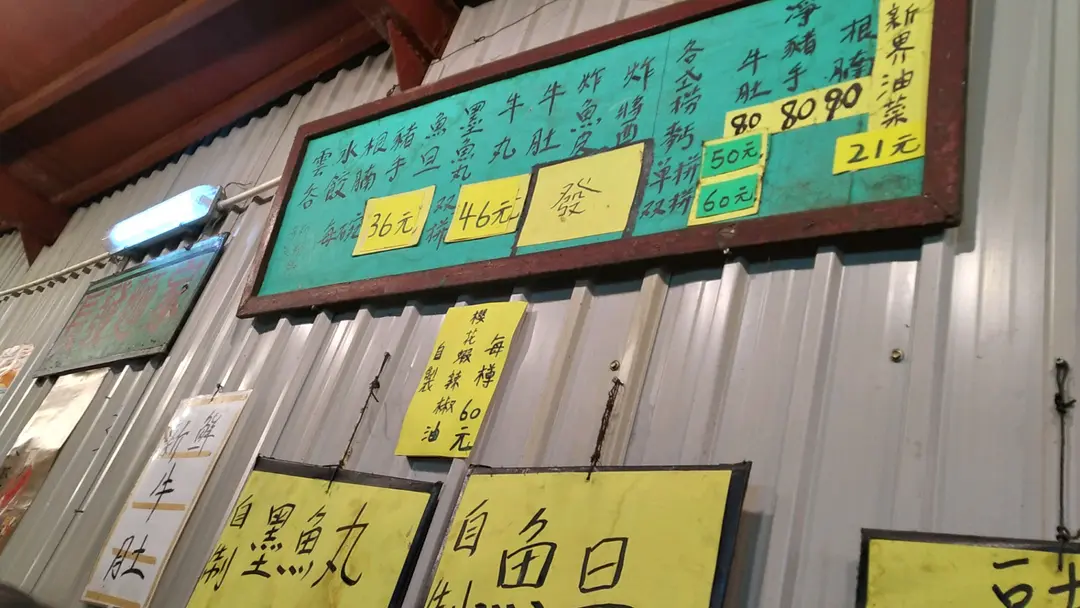 雲吞
水餃
根腩
豬手
魚旦
墨魚丸
牛丸
牛肚
炸魚皮
炸醬面
每碗
36元
双拼
46元
發
各式撈麪
单拼
50元
双拼
60元
牛肚
80
淨豬手
80
根腩
80
新界油菜
21元
自製
櫻花蝦辣椒油
每樽60元
新鮮
牛
肚
自制
墨魚丸
自制
魚旦